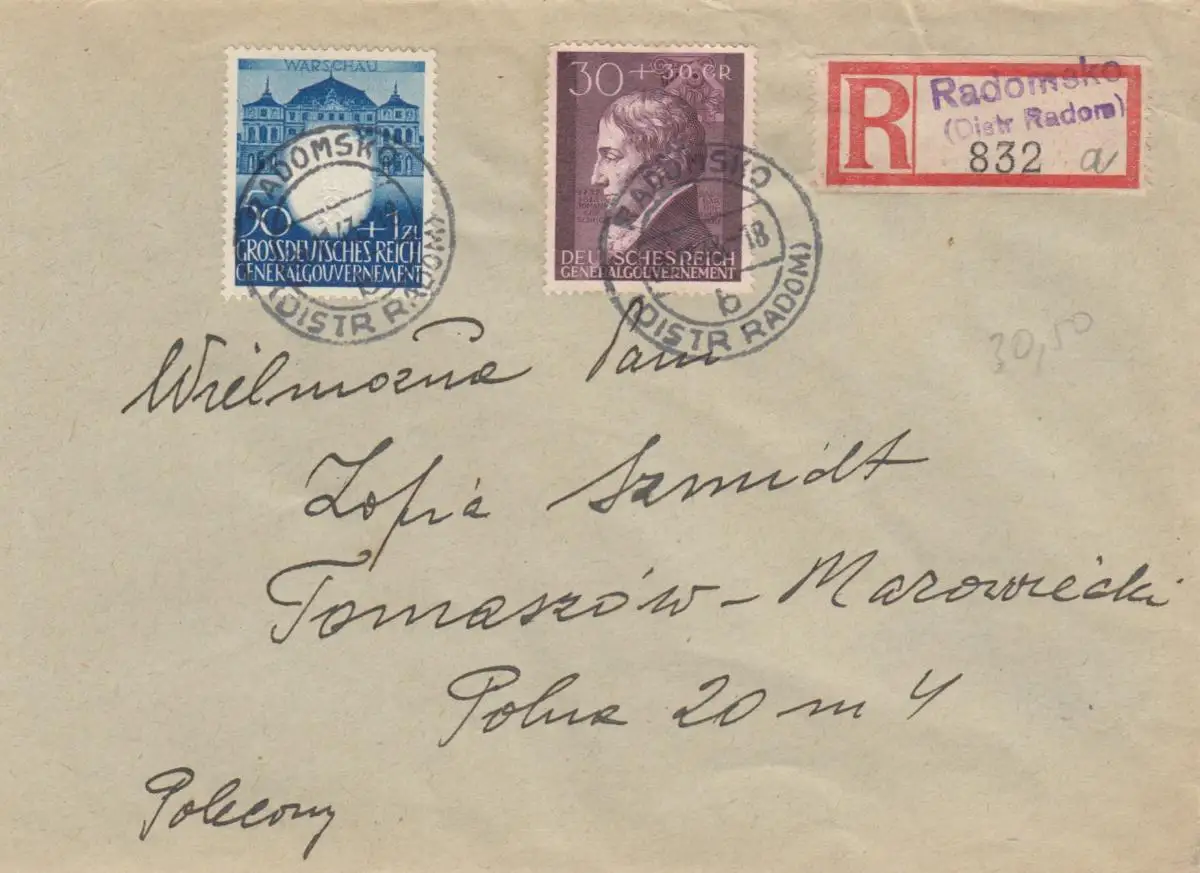 WARSCHAU
30 + 1 ZŁ
GROSSDEUTSCHES REICH
GENERALGOUVERNEMENT
RADOMSKO
(DISTR RADOM)
30 + 30 GR
DEUTSCHES REICH
GENERALGOUVERNEMENT
RADOMSKO
18
b
(DISTR RADOM)
R
Radomsko
(Distr Radom)
832 a
30,50
Wielmożna Pani
Zofia Szmidt
Tomaszów - Mazowiecki
Polna 20 m 4
Polecony